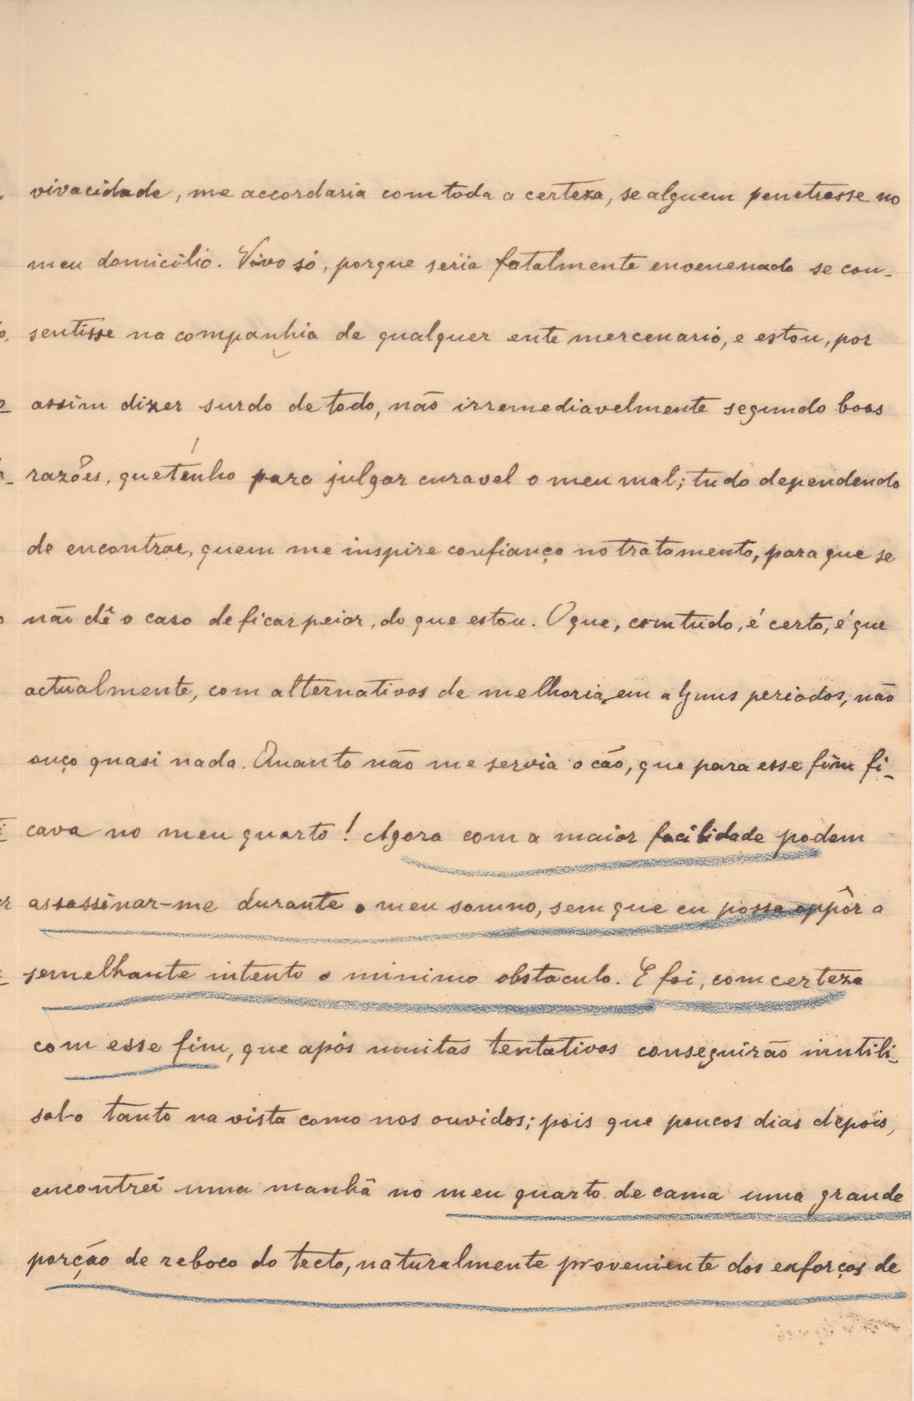 vivacidade, me accordaria com toda a certeza, se alguem penetrasse no
meu domicilio. Vivo só, porque seria fatalmente envenenado se con-
sentisse na companhia de qualquer ente mercenario, e estou, por
assim dizer surdo de todo, não irremediavelmente segundo boas
razões, que tenho para julgar curavel o meu mal; tudo dependendo
de encontrar, quem me inspire confiança no tratamento, para que se
não dê o caso de ficar peior, do que estou. O que, comtudo, é certo, é que
actualmente, com alternativas de melhoria em alguns periodos, não
ouço quasi nada. Quanto não me servia o cão, que para esse fim fi-
cava no meu quarto! Agora com a maior facilidade podem
assassinar-me durante o meu somno, sem que eu possa oppôr a
semelhante intento o minimo obstaculo. E foi, com certeza
com esse fim, que após muitas tentativas conseguirão inutili-
sal-o tanto na vista como nos ouvidos; pois que poucos dias depois,
encontrei uma manhã no meu quarto de cama uma grande
porção de reboco do tecto, naturalmente proveniente dos esforços de